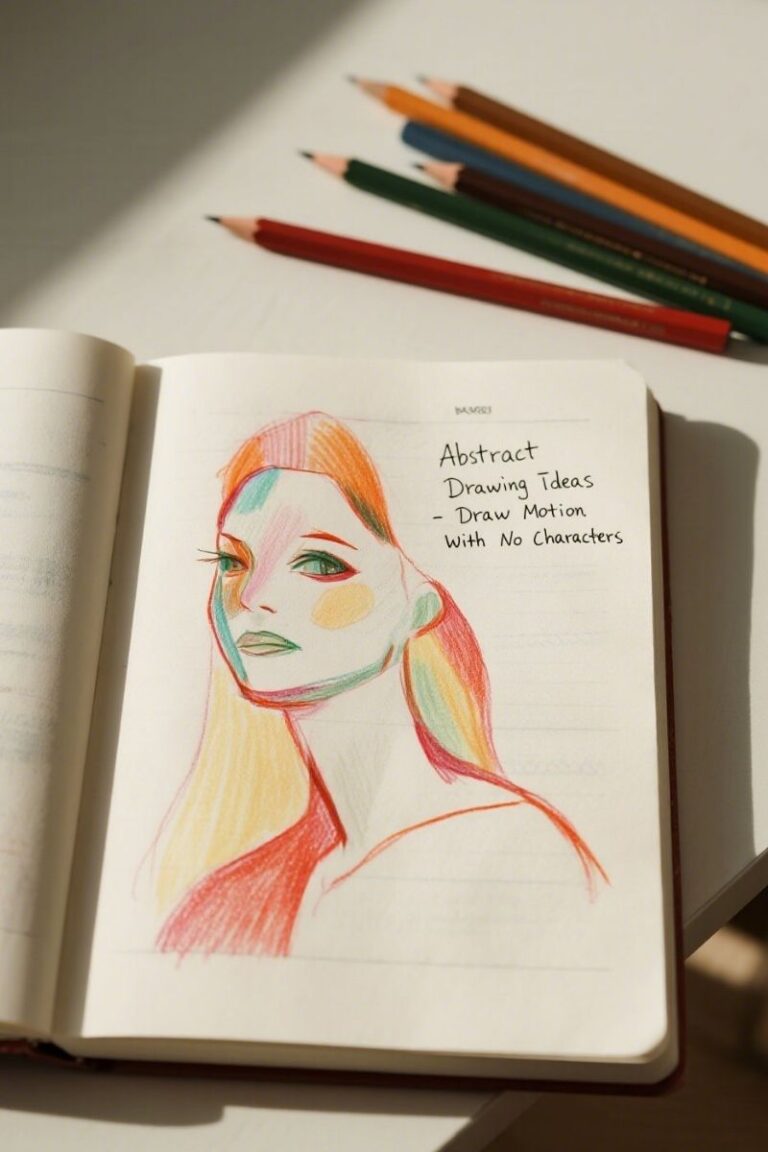 Abstract
Drawing Ideas
- Draw Motion
With No Characters